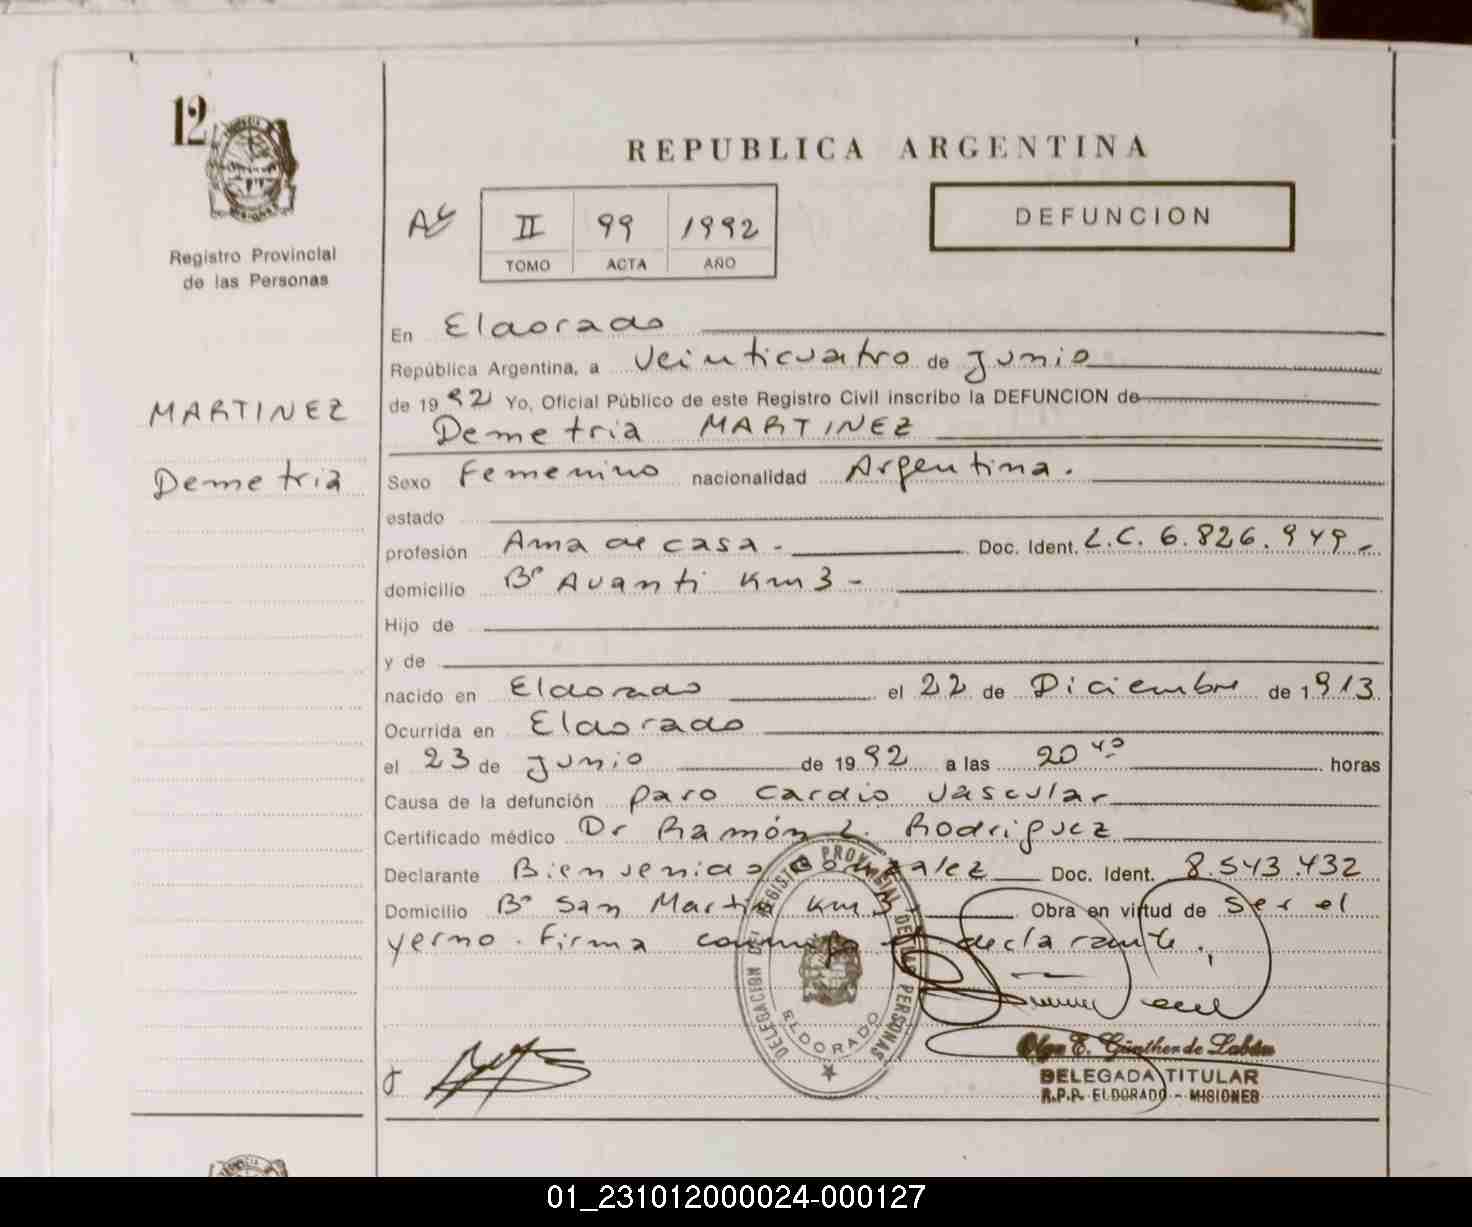 12
REPUBLICA ARGENTINA
DEFUNCION
II 99 1992
TOMO ACTA AÑO
Registro Provincial
de las Personas
MARTINEZ
Demetria
En Eldorado
República Argentina, a veinticuatro de Junio
de 1992 Yo, Oficial Público de este Registro Civil inscribo la DEFUNCION de
Demetria MARTINEZ
Sexo Femenino nacionalidad Argentina.
estado
profesión Ama de casa.- Doc. Ident. L.C. 6.826.949.-
domicilio Bº Avanti Km 3-
Hijo de
y de
nacido en Eldorado el 22 de Diciembre de 1.913
Ocurrida en Eldorado
el 23 de Junio de 1992 a las 20 horas
Causa de la defunción paro cardio vascular
Certificado médico Dr Ramón L. Rodriguez
Declarante Bienvenido Gonzalez Doc. Ident. 8.543.432
Domicilio Bº San Martin Km 3 Obra en virtud de ser el
yerno. Firma conmigo el declarante.
DELEGACION DEL REGISTRO PROVINCIAL DE LAS PERSONAS
ELDORADO
Olga E. Günther de Labán
DELEGADA TITULAR
R.P.P. ELDORADO - MISIONES
01_231012000024-000127